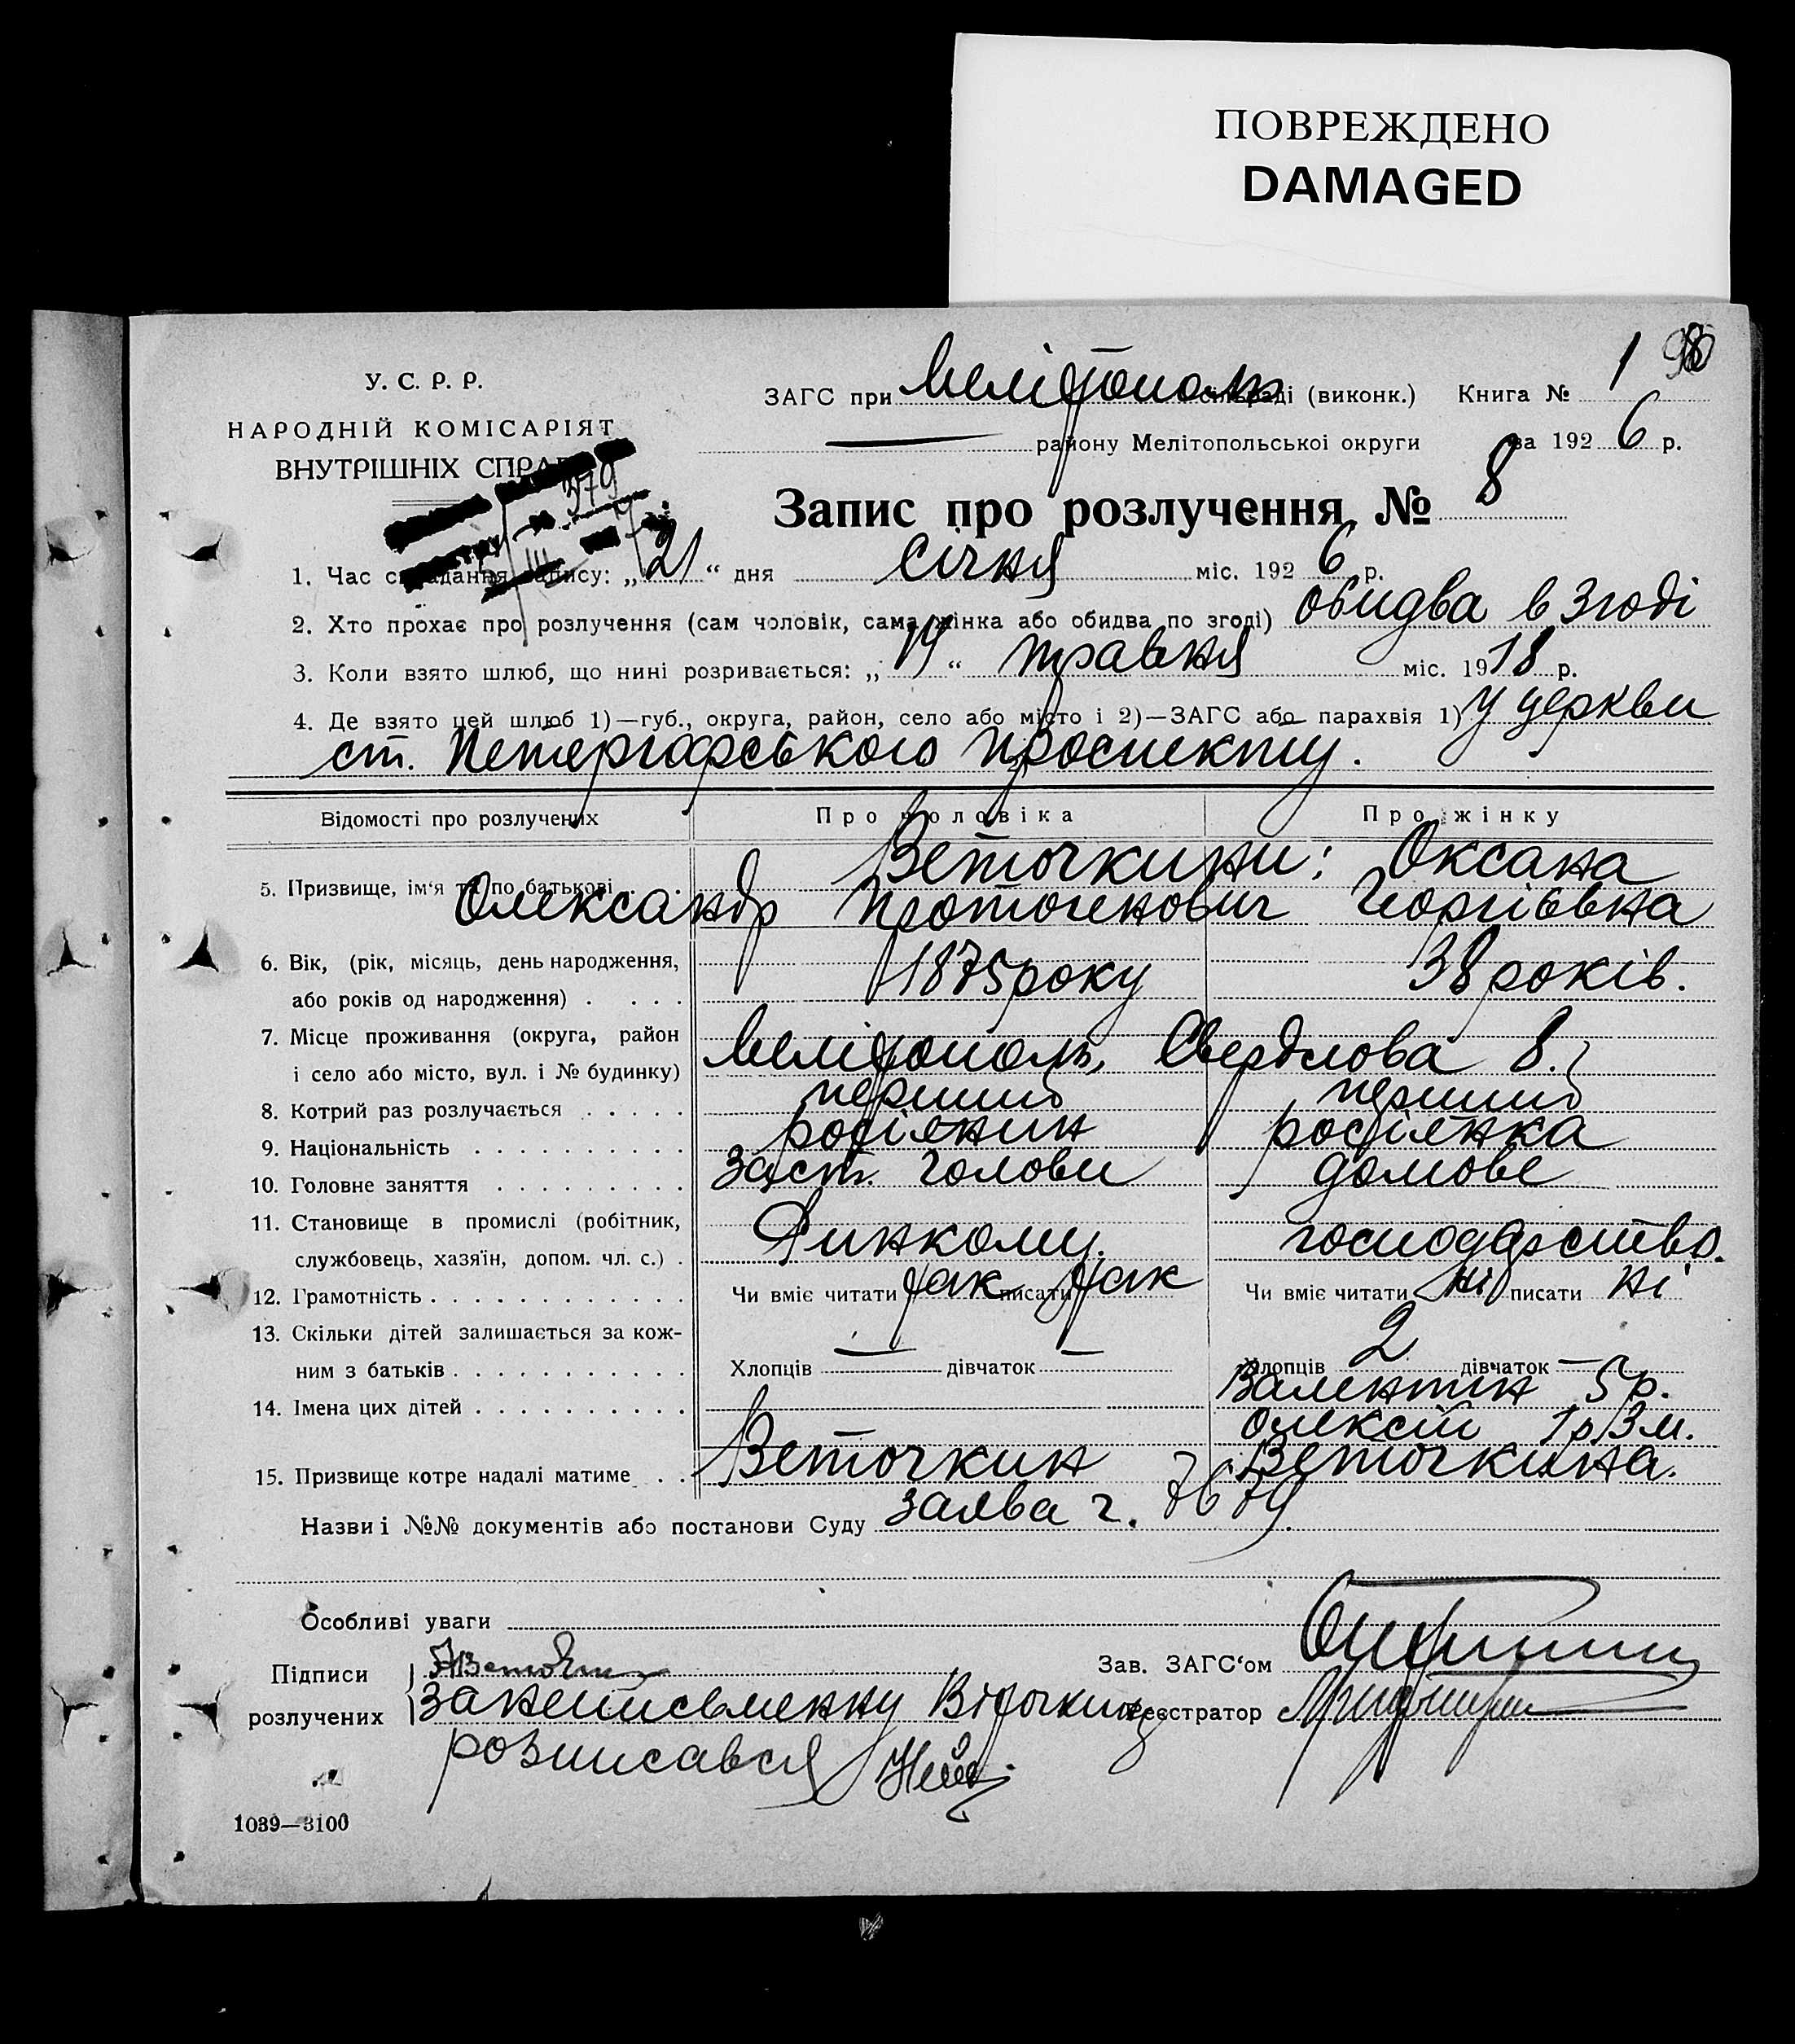 ПОВРЕЖДЕНО
DAMAGED
У. С. Р. Р.
НАРОДНІЙ КОМІСАРІЯТ
ВНУТРІШНІХ СПРАВ
379
ЗАГС при Мелітополь сільраді (виконк.) Книга № 1
району Мелітопольської округи за 1926 р.
Запис про розлучення № 8
1. Час складання запису: „21“ дня січня міс. 1926 р.
2. Хто прохає про розлучення (сам чоловік, сама жінка або обидва по згоді) обидва в згоді
3. Коли взято шлюб, що нині розривається: „14“ травня міс. 1918 р.
4. Де взято цей шлюб 1)—губ., округа, район, село або місто і 2)—ЗАГС або парахвія 1) У церкви
ст. Петергофського проспекту.
Відомості про розлучених Про чоловіка Про жінку
Веточкини: Оксана
5. Призвище, ім‘я та по батькові
Олександр Георгіевна
6. Вік, (рік, місяць, день народження,
або років од народження) 1875 року 38 років.
7. Місце проживання (округа, район
і село або місто, вул. і № будинку) Мелітополь, Свердлова 8.
8. Котрий раз розлучається перший перший
9. Національність росіянин росіянка
10. Головне заняття заст. голови домове
11. Становище в промислі (робітник,
службовець, хазяїн, допом. чл. с.) Финкому. господарство.
12. Грамотність Чи вміє читати так писати так Чи вміє читати ні писати ні
13. Скільки дітей залишається за кож-
ним з батьків Хлопців — дівчаток — Хлопців 2 дівчаток —
14. Імена цих дітей Валентин 5 р.
Олексій 1 р. 3 м.
15. Призвище котре надалі матиме Веточкин Веточкина.
Назви і №№ документів або постанови Суду заява г. 7679
Особливі уваги
Підписи Зав. ЗАГС‘ом
розлучених за неписьменну Вітачкину Реєстратор
розписався
1039—3100